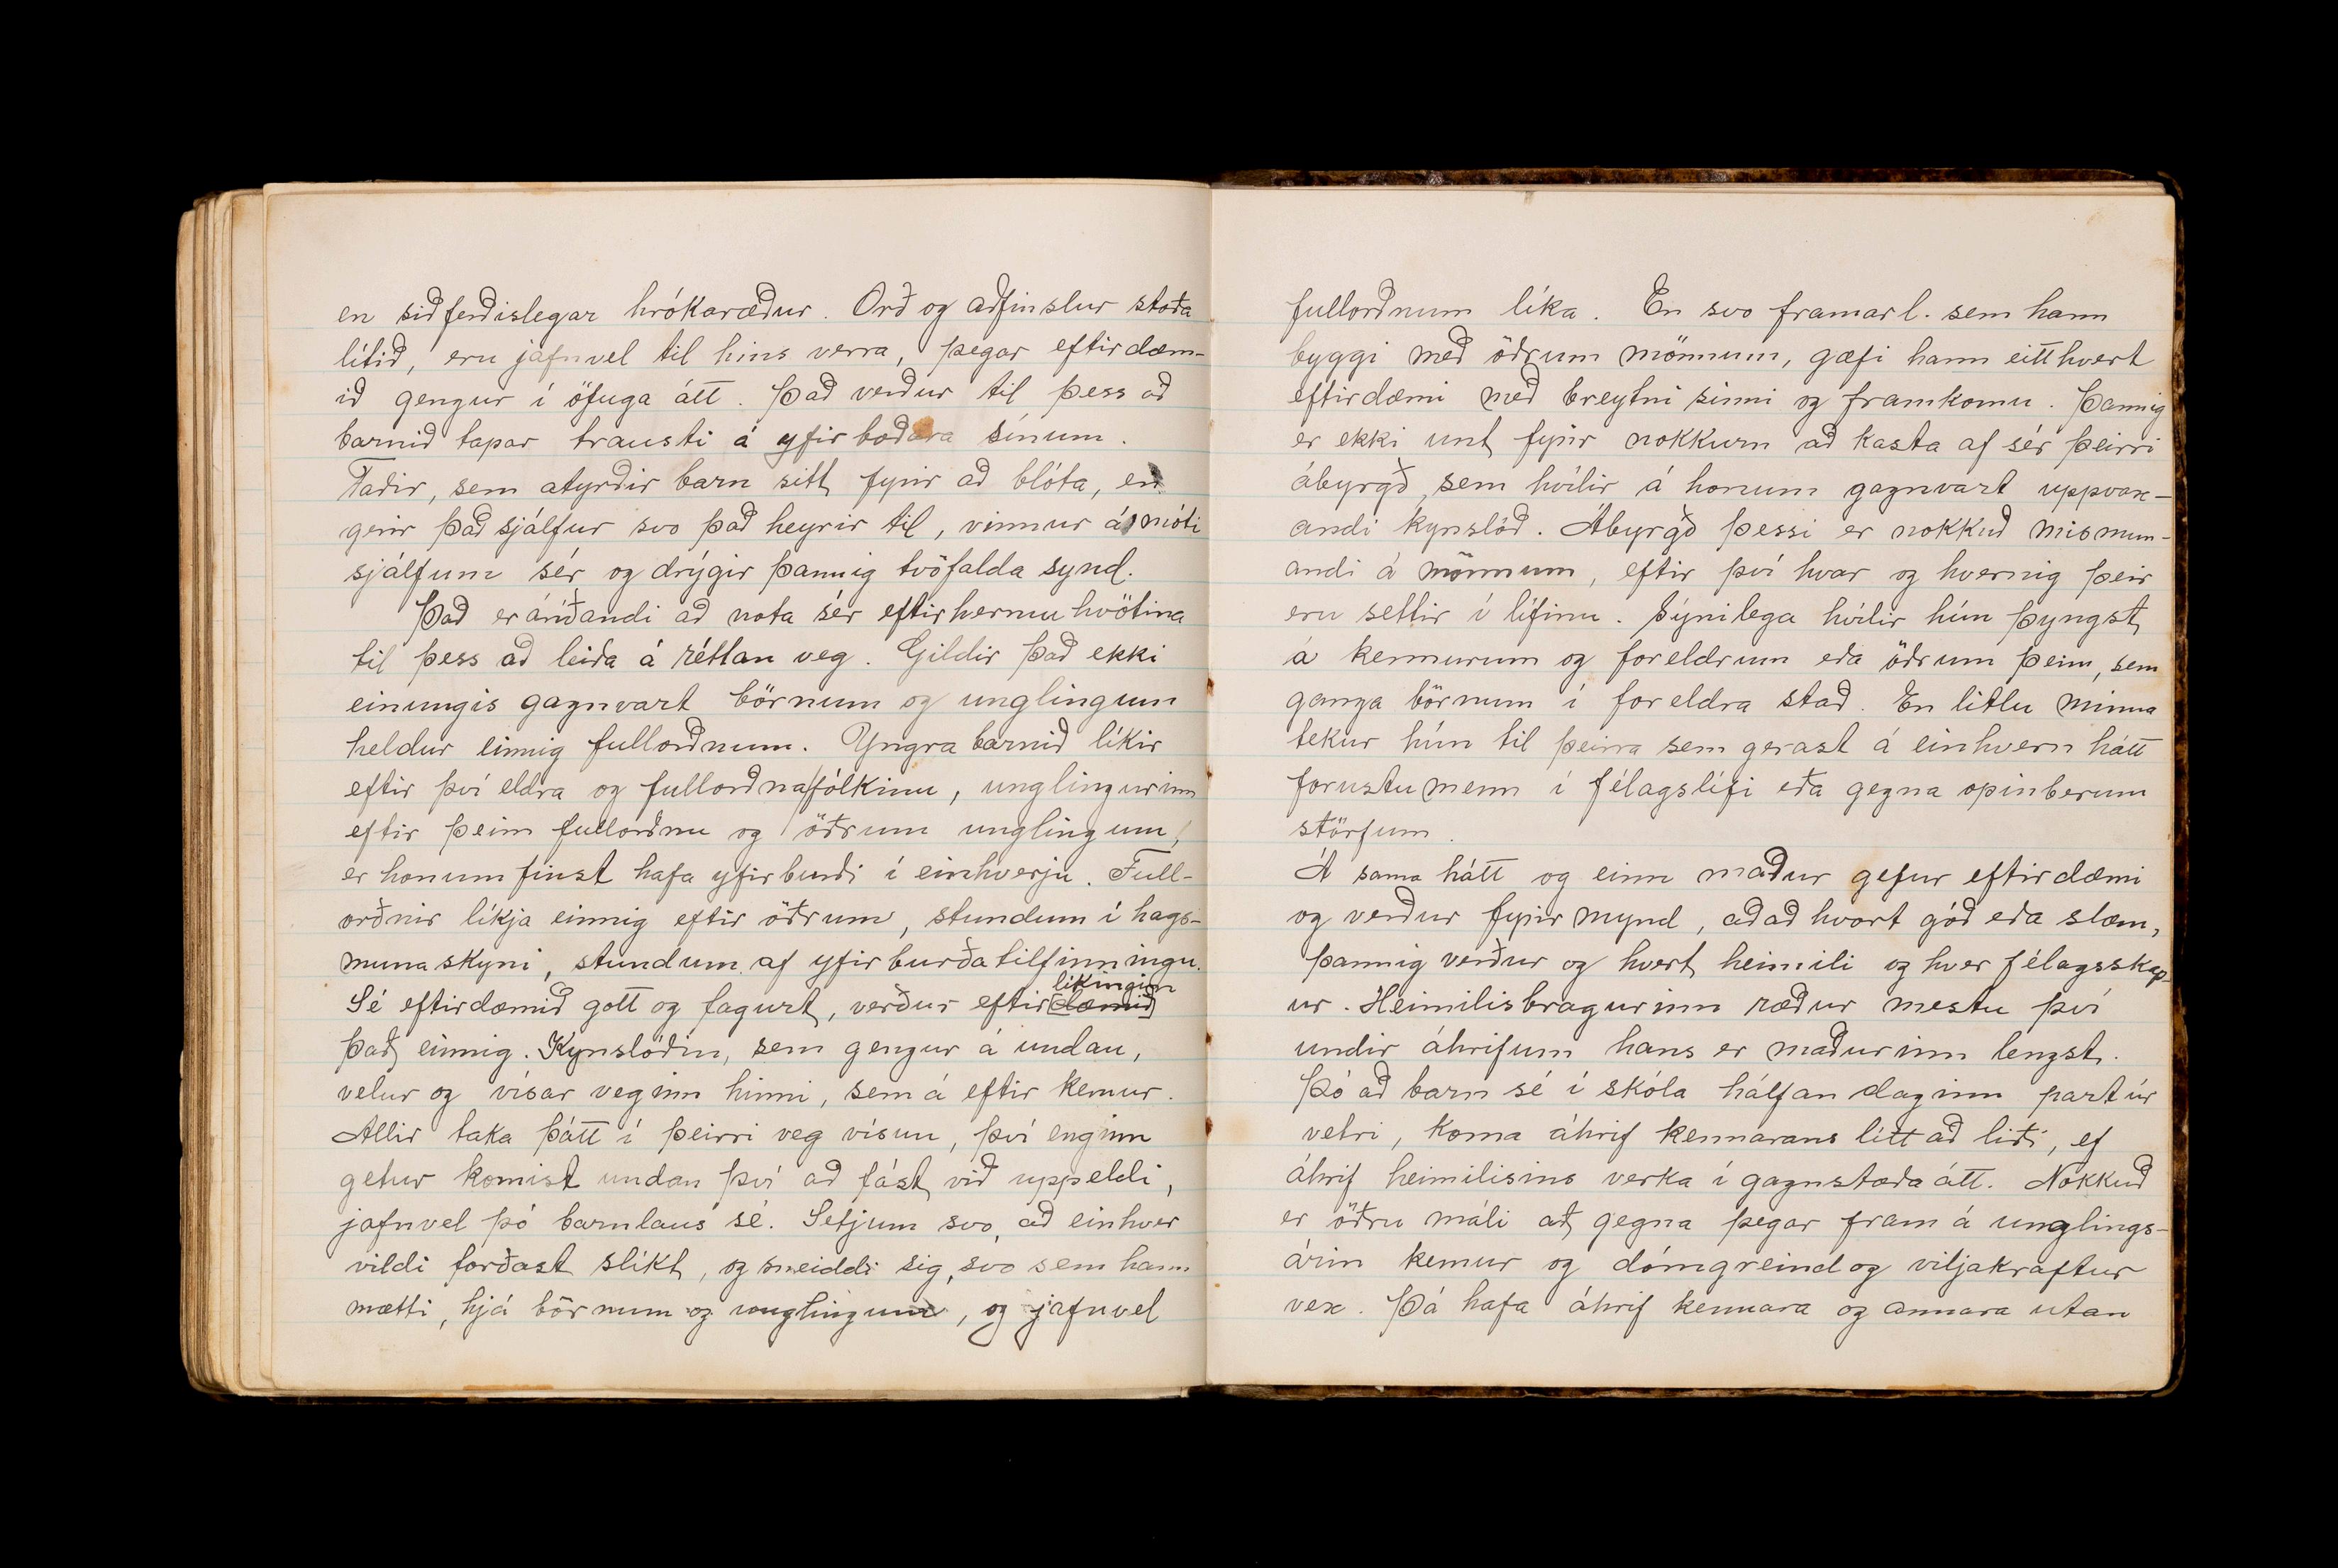 en siðferðislegar hrókaræður. Orð og aðfinslur stoða
lítið, eru jafnvel til hins verra, þegar eftirdæm-
ið gengur í öfuga átt. Það verður til þess að
barnið tapar trausti á yfirboðara sínum.
Faðir, sem atyrðir barn sitt fyrir að blóta, en
gerir það sjálfur svo það heyrir til, vinnur á móti
sjálfum sér og drýgir þannig tvöfalda synd.
Það er áríðandi að nota sér eftirhermuhvötina
til þess að leiða á réttan veg. Gildir það ekki
einungis gagnvart börnum og unglingum
heldur einnig fullorðnum. Yngra barnið líkir
eftir því eldra og fullorðna fólkinu, unglingurinn
eftir þeim fullorðnu og öðrum unglingum,
er honum finst hafa yfirburði í einhverju. Full-
orðnir líkja einnig eftir öðrum, stundum í hags-
munaskyni, stundum af yfirburðatilfinningu.
líkingin
Sé eftirdæmið gott og fagurt, verður eftir[dæmið]
það einnig. Kynslóðin, sem gengur á undan,
velur og vísar veginn hinni, sem á eftir kemur.
Allir taka þátt í þeirri veg vísun, því enginn
getur komist undan því að fást við uppeldi,
jafnvel þó barnlaus sé. Setjum svo, að einhver
vildi forðast slíkt, og sneiddi sig, svo sem hann
mætti, hjá börnum og unglingum, og jafnvel
fullorðnum líka. En svo framarl. sem hann
byggi með öðrum mönnum, gæfi hann eitthvert
eftirdæmi með breytni sinni og framkomu. Þannig
er ekki unt fyrir nokkurn að kasta af sér þeirri
ábyrgð, sem hvílir á honum gagnvart uppvax-
andi kynslóð. Ábyrgð þessi er nokkuð mismun-
andi á mönnum, eftir því hvar og hvernig þeir
eru settir í lífinu. Sýnilega hvílir hún þyngst
á kennurum og foreldrum eða öðrum þeim, sem
ganga börnum í foreldra stað. En litlu minna
tekur hún til þeirra sem gerast á einhvern hátt
forustumenn í félagslífi eða gegna opinberum
störfum.
Á sama hátt og einn maður gefur eftirdæmi
og verður fyrirmynd, að að hvort góð eða slæm,
þannig verður og hvert heimili og hver félagsskap-
ur. Heimilisbragurinn ræður mestu því
undir áhrifum hans er maðurinn lengst.
Þó að barn sé í skóla hálfan daginn part úr
vetri, koma áhrif kennarans lítt að liði, ef
áhrif heimilisins verka í gagnstæða átt. Nokkuð
er öðru máli að gegna þegar fram á unglings-
árin kemur og dómgreind og viljakraftur
vex. Þá hafa áhrif kennara og annara utan